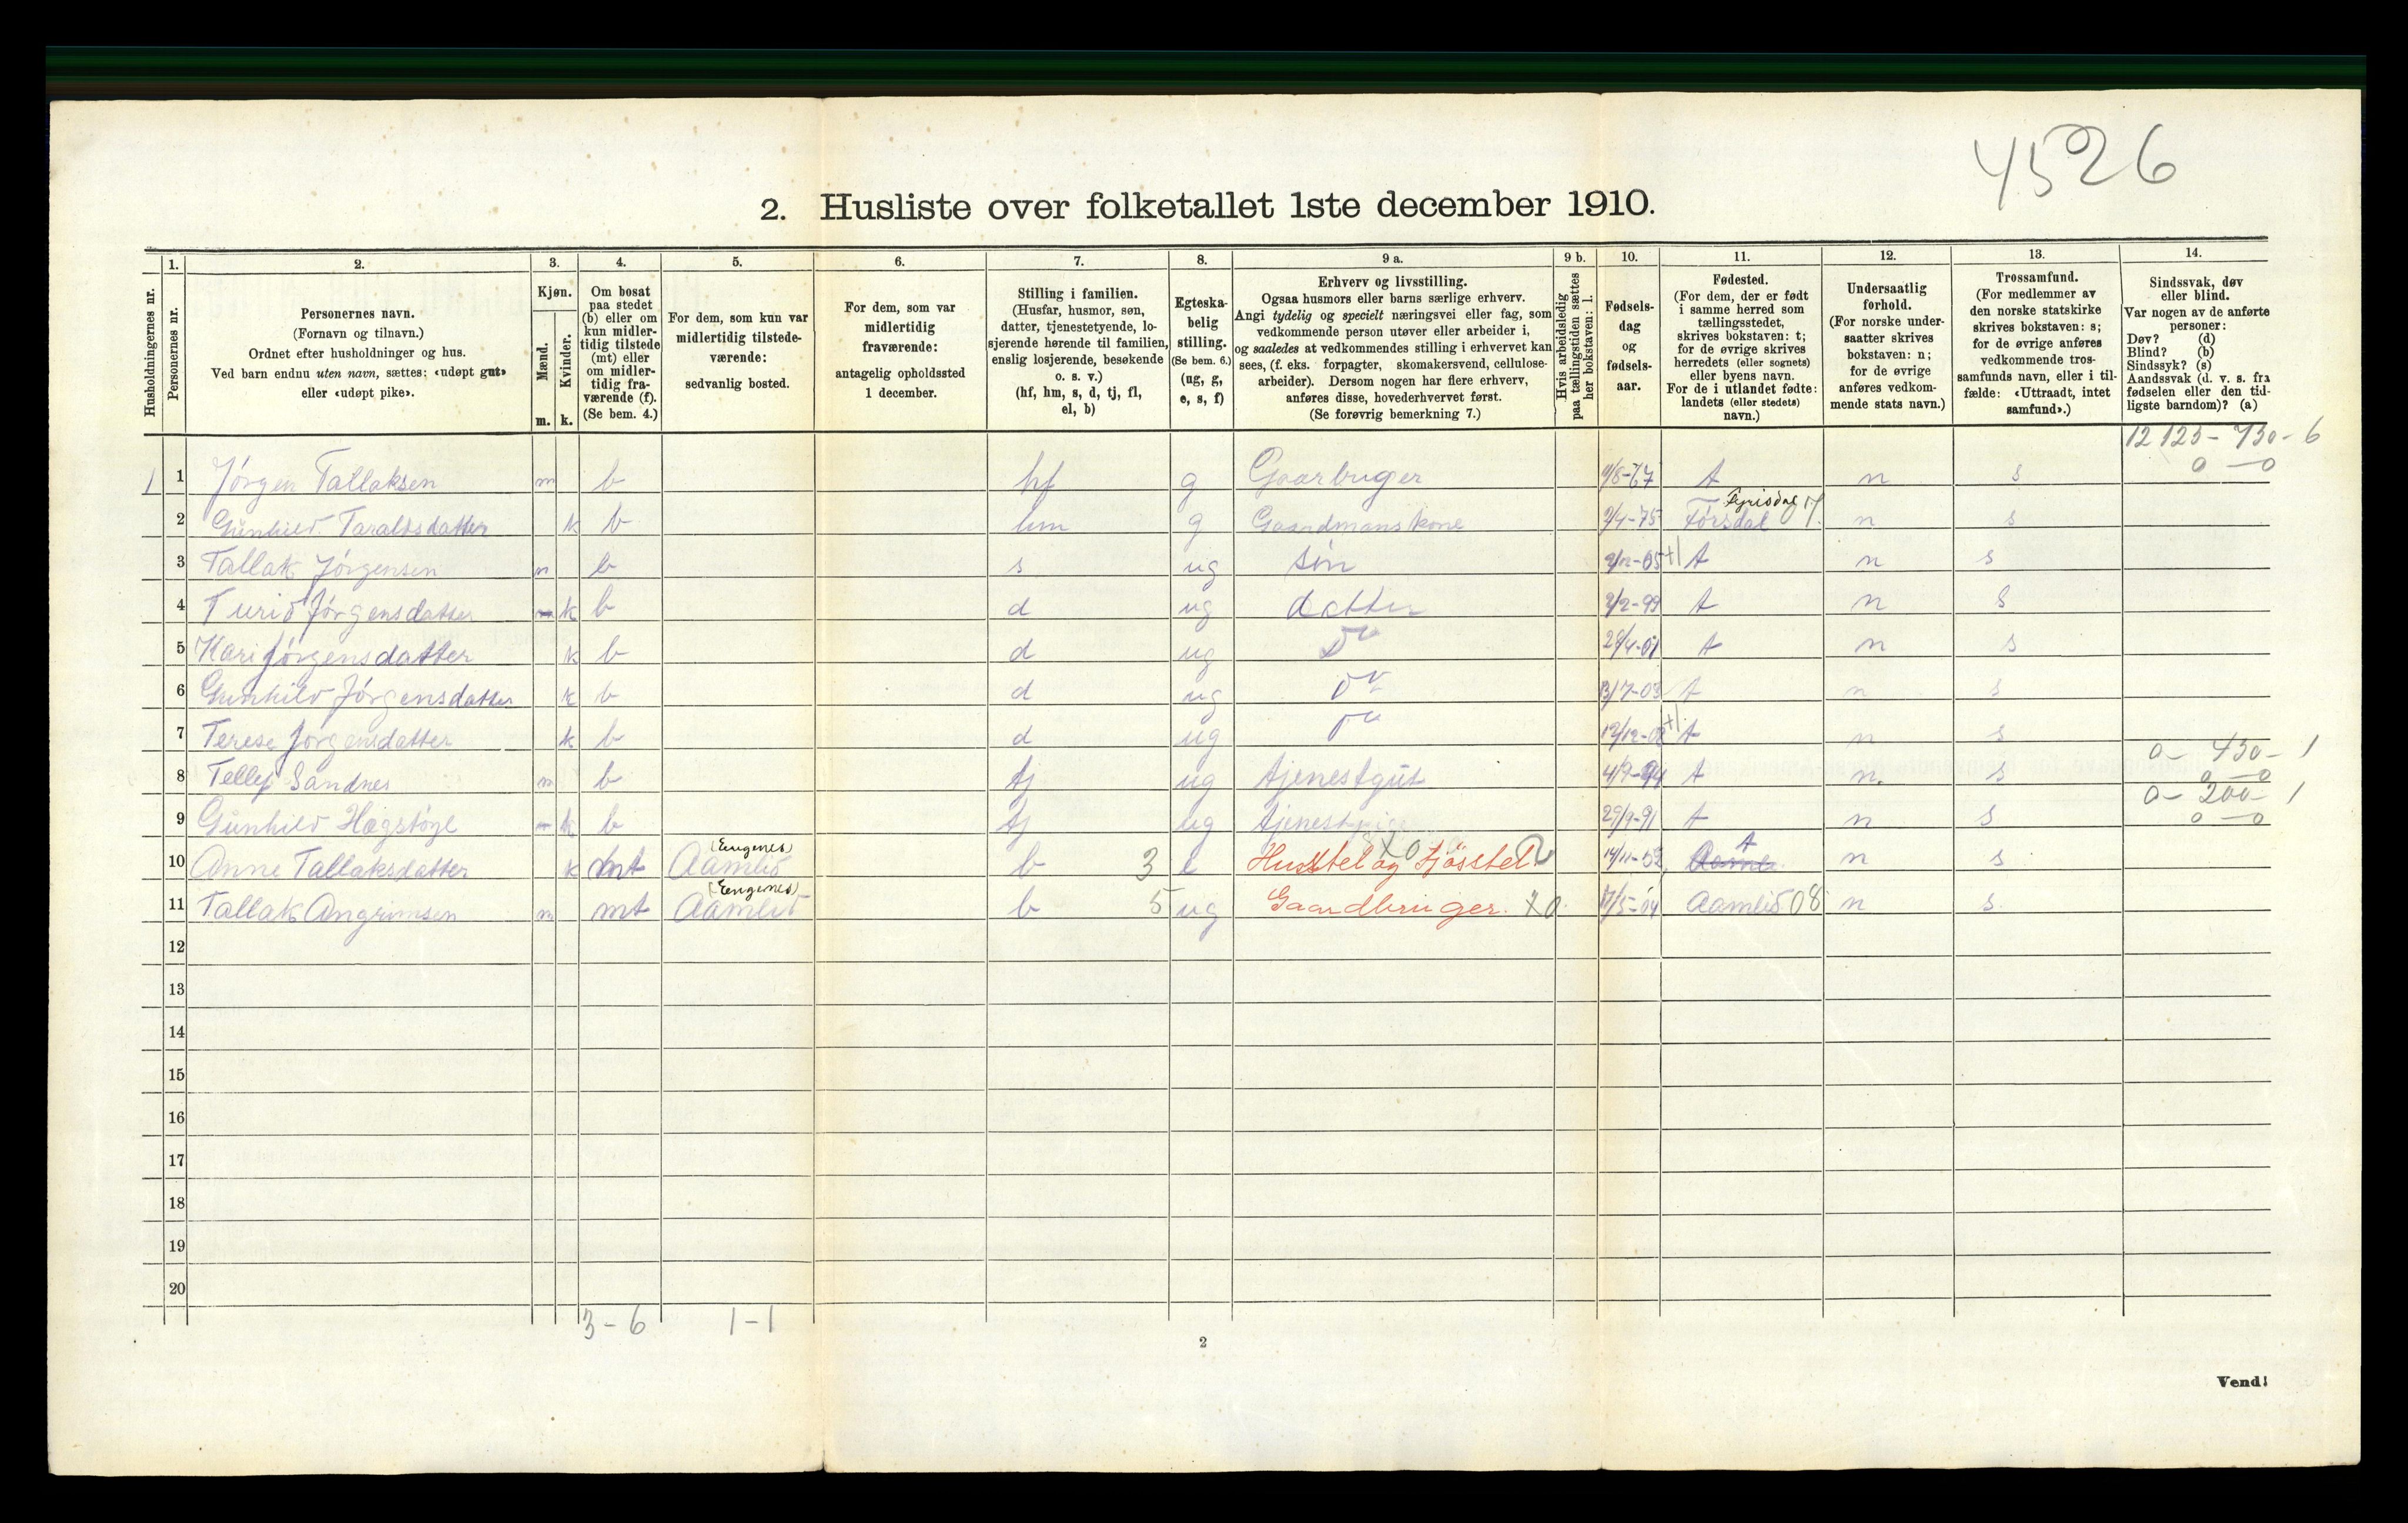 4526
2. Husliste over folketallet 1ste december 1910.
Husholdningernes nr.
1. Personernes nr.
2. Personernes navn. (Fornavn og tilnavn.) Ordnet efter husholdninger og hus. Ved barn endnu uten navn, sættes: «udøpt gut» eller «udøpt pike».
3. Kjøn. Mænd. m. Kvinder. k.
4. Om bosat paa stedet (b) eller om kun midlertidig tilstede (mt) eller om midlertidig fraværende (f). (Se bem. 4.)
5. For dem, som kun var midlertidig tilstedeværende: sedvanlig bosted.
6. For dem, som var midlertidig fraværende: antagelig opholdssted 1 december.
7. Stilling i familien. (Husfar, husmor, søn, datter, tjenestetyende, losjerende hørende til familien, enslig losjerende, besøkende o. s. v.) (hf, hm, s, d, tj, fl, el, b)
8. Egteskabelig stilling. (Se bem. 6.) (ug, g, e, s, f)
9 a. Erhverv og livsstilling. Ogsaa husmors eller barns særlige erhverv. Angi tydelig og specielt næringsvei eller fag, som vedkommende person utøver eller arbeider i, og saaledes at vedkommendes stilling i erhvervet kan sees, (f. eks. forpagter, skomakersvend, cellulosearbeider). Dersom nogen har flere erhverv, anføres disse, hovederhvervet først. (Se forøvrig bemerkning 7.)
9 b. Hvis arbeidsledig paa tællingstiden sættes her bokstaven: l.
10. Fødselsdag og fødselsaar.
11. Fødested. (For dem, der er født i samme herred som tællingsstedet, skrives bokstaven: t; for de øvrige skrives herredets (eller sognets) eller byens navn. For de i utlandet fødte: landets (eller stedets) navn.)
12. Undersaatlig forhold. (For norske undersaatter skrives bokstaven: n; for de øvrige anføres vedkommende stats navn.)
13. Trossamfund. (For medlemmer av den norske statskirke skrives bokstaven: s; for de øvrige anføres vedkommende trossamfunds navn, eller i tilfælde: «Uttraadt, intet samfund».)
14. Sindssvak, døv eller blind. Var nogen av de anførte personer: Døv? (d) Blind? (b) Sindssyk? (s) Aandssvak (d. v. s. fra fødselen eller den tidligste barndom)? (a)
12 125 - 730 - 6
0 - 0
1 1 Jørgen Tallaksen m b hf g Gaarbruger t n s
2 Gunhild Taraldsdatter k b hm g Gaardmanskone 2/4-75 Førsdal Fyrisdal n s
3 Tallak Jørgensen m b s ug søn +1 t n s
4 Turid Jørgensdatter m k b d ug datter 2/2-99 t n s
5 Kari Jørgensdatter k b d ug Do 28/4-01 t n s
6 Gunhild Jørgensdatter k b d ug Do 13/7-03 t n s
7 Terese Jørgensdatter k b d ug Do +1 t n s
0 - 430 - 1
8 Tellef Sandnes m b tj ug tjenestgut t n. s 0 - 0
0 - 200 - 1
9 Gunhild m k b tj ug 29/9-91 t n s 0 - 0
10 Anne Tallaksdatter k mt Aamlid (Eugenes) b 3 e Husstel og Fjøsstel t n s
11 Tallak Angrimsen m mt Aamlid (Eugenes) b 5 ug Gaardbruger. Aamlid 08 n s.
12
13
14
15
16
17
18
19
20
3 - 6 1 - 1
2
Vend!